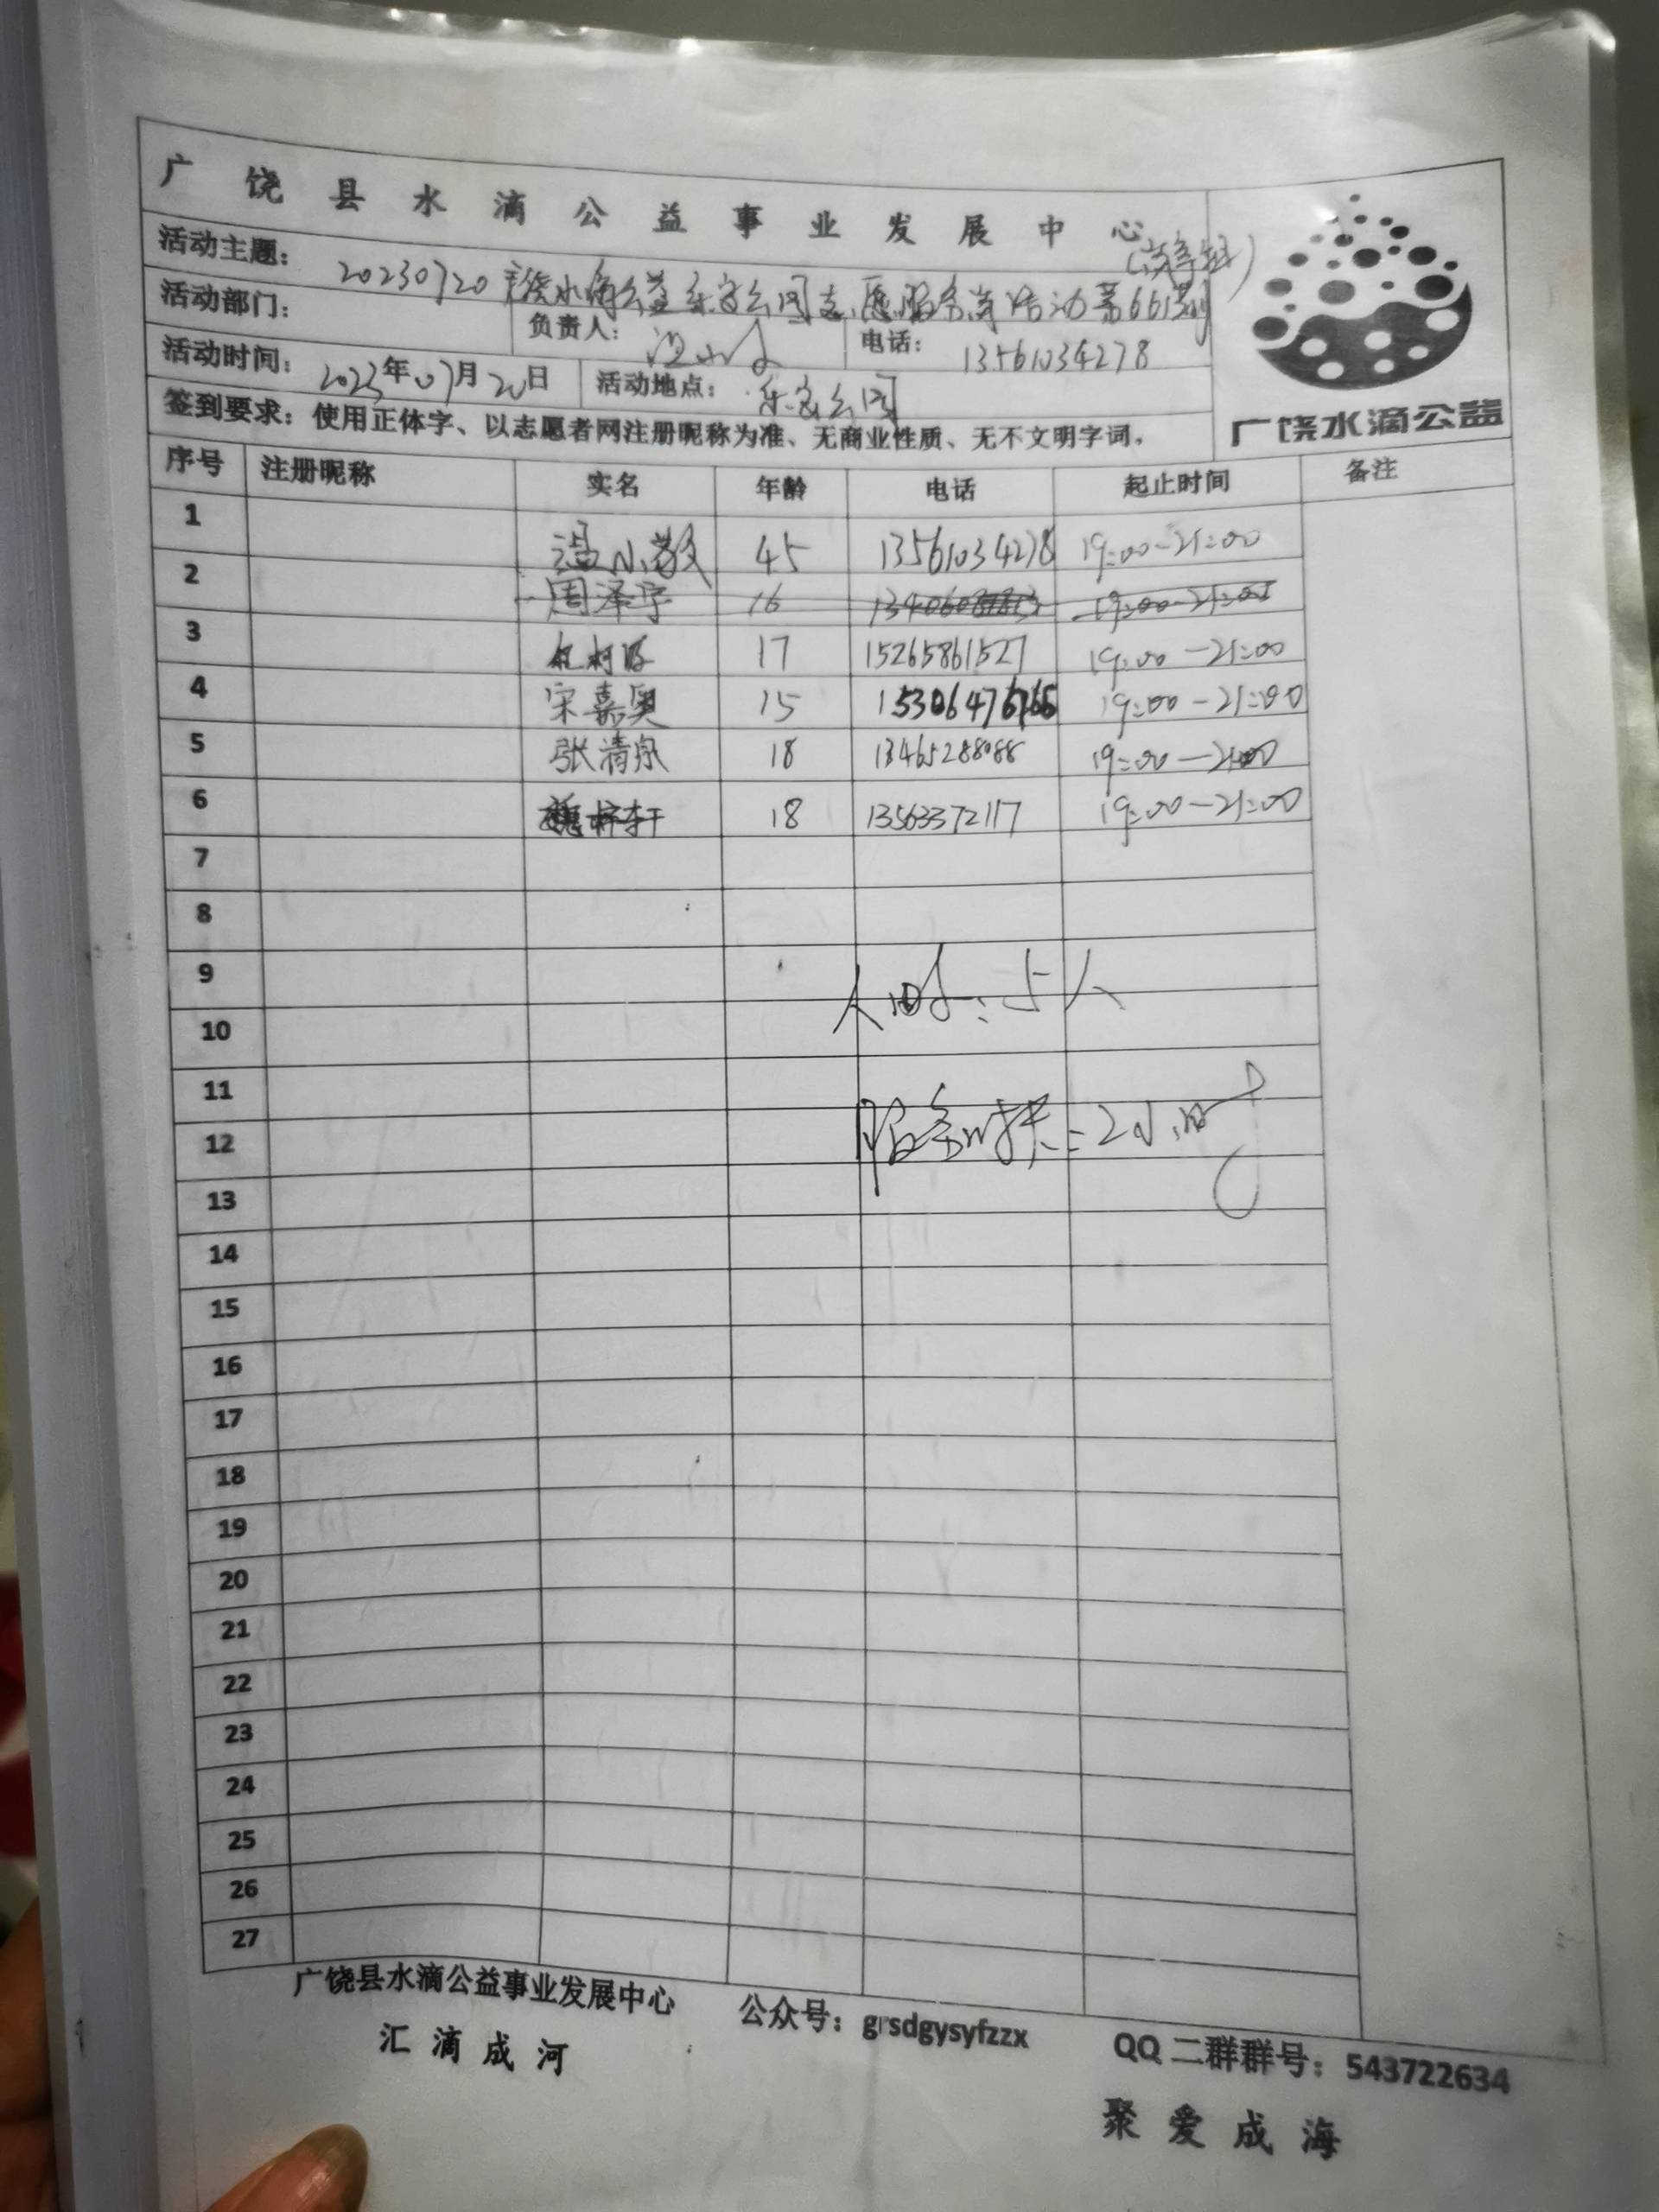 广饶县水滴公益事业发展中心
活动主题: 20230720 水滴公益乐安公园志愿服务岗活动第661期
活动部门: 负责人: 电话: 13561034278
活动时间: 2023年07月20日 活动地点: 乐安公园
签到要求: 使用正体字、以志愿者网注册昵称为准、无商业性质、无不文明字词.
广饶水滴公益
序号 注册昵称 实名 年龄 电话 起止时间 备注
1 温小敏 45 13561034278 19:00-21:00
2 周泽宇 16 19:00-21:00
3 17 15265861527 19:00-21:00
4 宋嘉奥 15 19:00-21:00
5 张清泉 18 13465288088 19:00-21:00
6 魏梓轩 18 13563372117 19:00-21:00
7
8
9 人时:5人
10
11
12 服务时长:2小时
13
14
15
16
17
18
19
20
21
22
23
24
25
26
27
广饶县水滴公益事业发展中心 公众号: grsdgysyfzzx QQ二群群号: 543722634
汇滴成河 聚爱成海